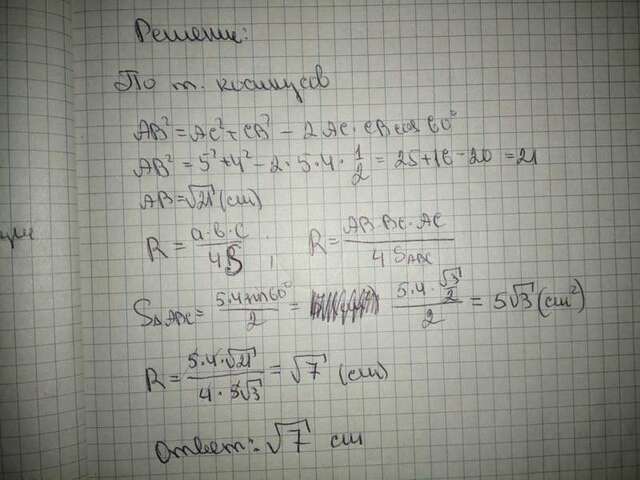 Решение:
По т. косинусов
AB² = AC² + CB² - 2AC · CB cos 60°
AB² = 5² + 4² - 2 · 5 · 4 · 1/2 = 25 + 16 - 20 = 21
AB = √21 (cm)
R = a·b·c / 4S ; R = AB·BC·AC / 4 S ABC
S△ABC = 5·4 sin 60° / 2 = 5·4·√3/2 / 2 = 5√3 (cm²)
R = 5·4·√21 / 4·5√3 = √7 (cm)
Ответ: √7 cm